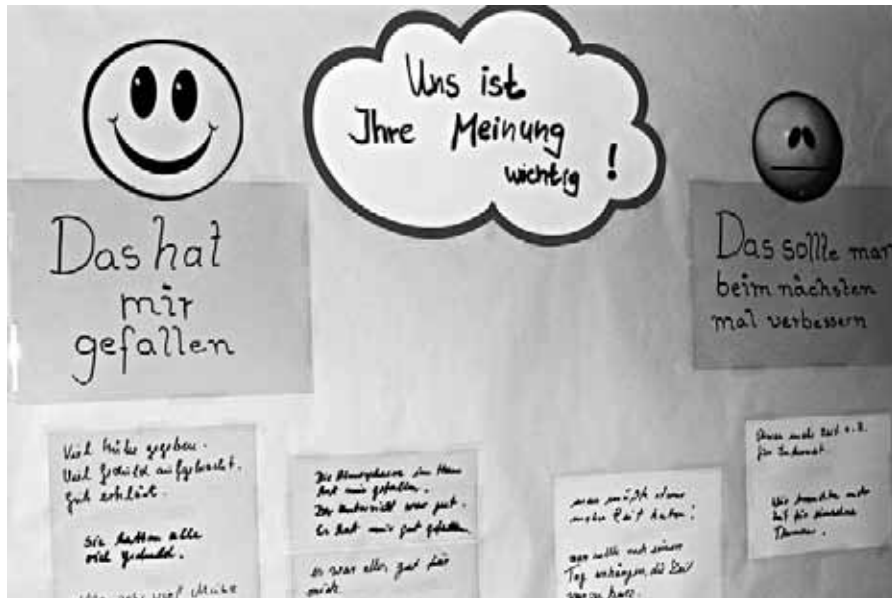 Uns ist
Ihre Meinung
wichtig !
Das hat
mir
gefallen
Das sollte man
beim nächsten
mal verbessern
Viel Mühe gegeben.
Viel Geduld aufgebracht.
Gut erklärt.
Sie hatten alle
viel Geduld.
viel Mühe
Die Atmosphäre im Haus
hat mir gefallen.
Der Unterricht war gut.
Er hat mir gut gefallen.
es war alles gut für
mich
man müßte etwas
mehr Zeit haben!
man sollte noch einen
Tag anhängen, die Zeit
war zu kurz.
Etwas mehr Zeit z.B.
für Internet.
Wir brauchten mehr
Zeit für einzelne
Themen.